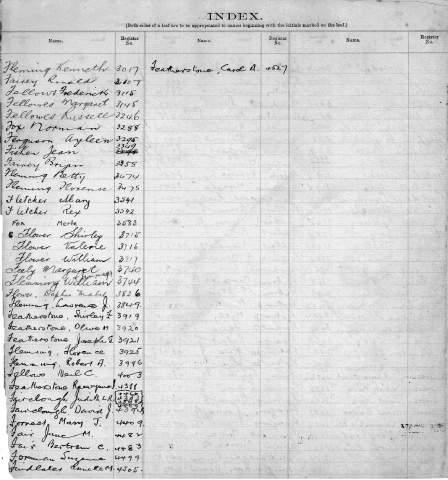 INDEX.
(Both sides of a leaf are to be appropriated to names beginning with the initials marked on the leaf.)
Name. Register No. Name. Register No. Name. Register No.
Fleming Kenneth 3017 Featherstone, Carol A. 4527
Fairey Ronald 3107
Fellows Frederick 3115
Fellowes Margaret 3145
Fellowes Russell 3246
Fox Norman 3288
Ferguson 3295
Fisher Jean 3349
Fairey Brian 3358
Fleming Betty 3474
Fleming Florence 3475
Fletcher Mary 3541
Fletcher Rex 3542
Fox Merle 3583
Flower Shirley 3715
Flower Valerie 3716
Flower William 3717
Feely Margaret 3740
Fleming William 3744
Flower, Daphne Mabel 3826
Fleming, Lawrence J. 3849
Featherstone, Shirley F. 3919
Featherstone, Olive M. 3920
Featherstone Joseph F. 3921
Fleming, Florence 3925
Flemming, Robert A. 3996
Fellows Neil C. 4003
Featherstone 4388
Fairclough Judith L.R.
Fairclough David J. 4393
Forrest Mary J. 4409
Fair June M. 4482
Fair Bertram C. 4483
Forman Suzanne 4499
4505